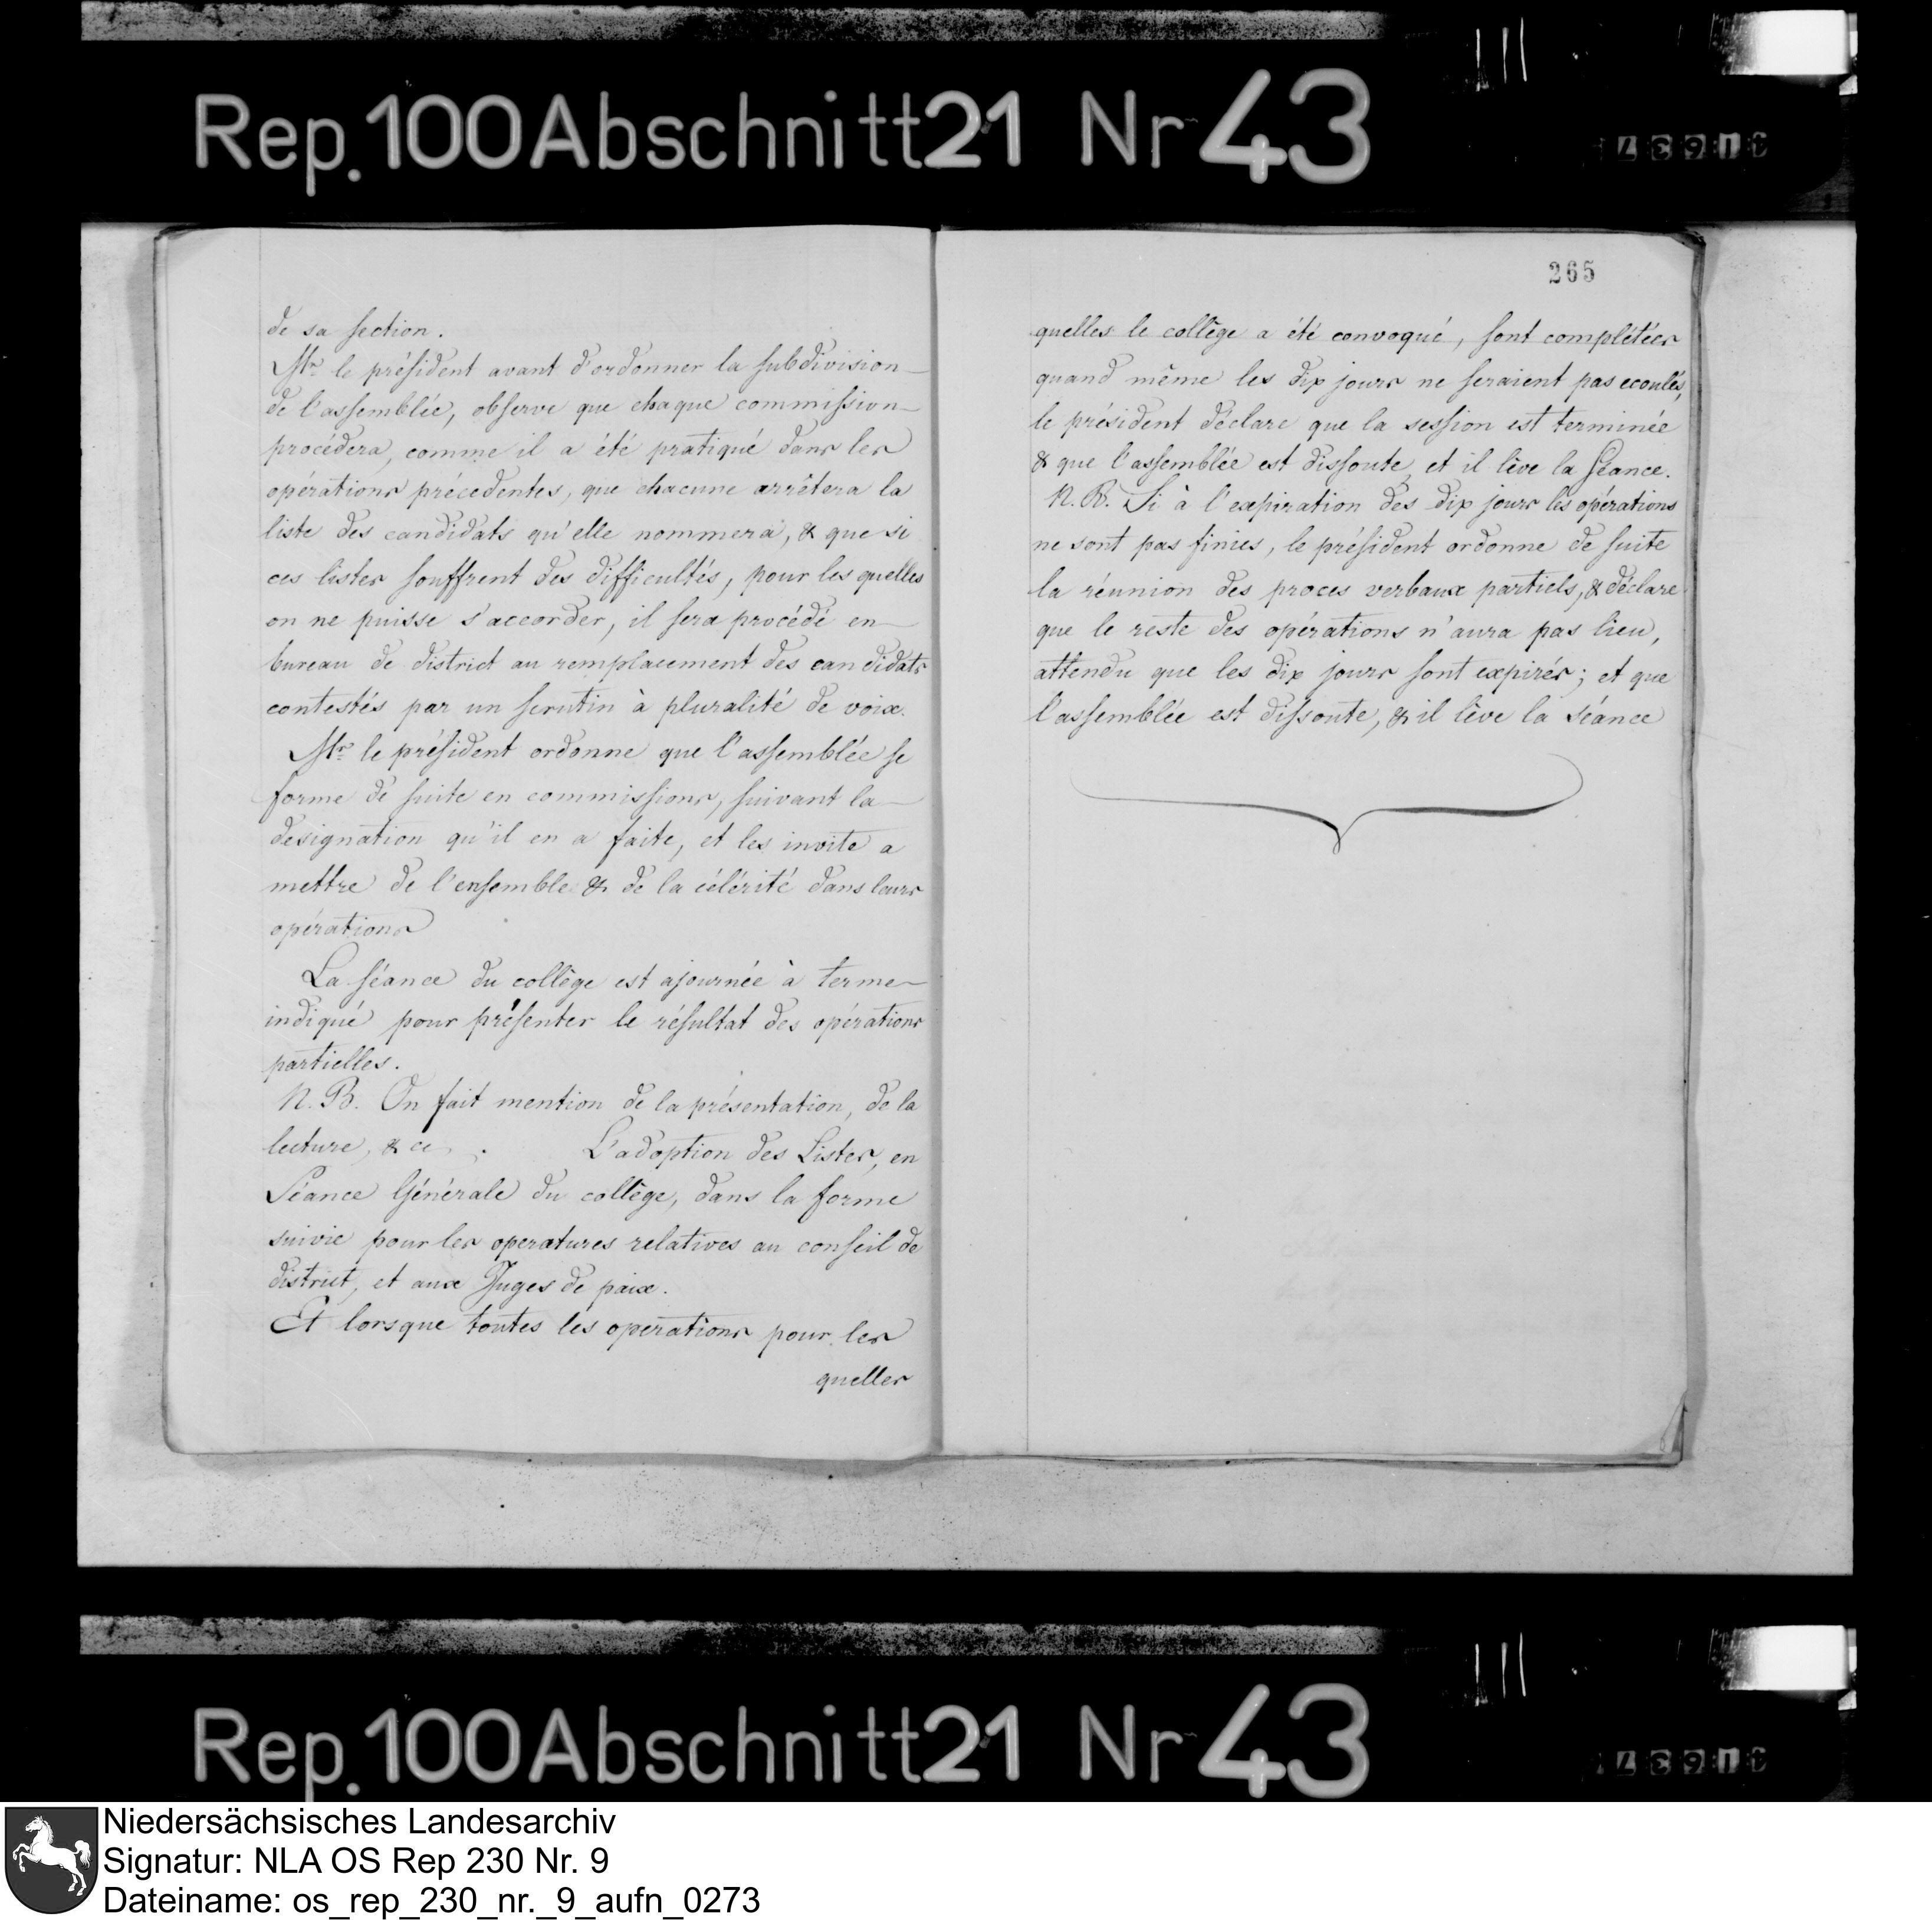 Rep.100Abschnitt21 Nr 43
de sa section.
Mr. le président avant d'ordonner la subdivision
de l'assemblée, observe que chaque commission
procédera, comme il a été pratiqué dans les
opérations précedentes, que chacune arrêtera la
liste des candidats qu'elle nommera, & que si
ces listes souffrent des difficultés, pour les quelles
on ne puisse s'accorder, il sera procédé en
bureau de district au remplacement des candidats
contestés par un scrutin à pluralité de voix.
Mr. le président ordonne que l'assemblée se
forme de suite en commissions, suivant la
designation qu'il en a faite, et les invite a
mettre de l'ensemble & de la célérité dans leurs
opérations
La séance du collège est ajournée à terme
indiqué pour présenter le résultat des opérations
partielles.
N. B. On fait mention de la présentation, de la
lecture, & ce . L'adoption des Listes, en
Séance Générale du collège, dans la forme
suivie pour les operatures relatives au conseil de
district, et aux Juges de paix.
Et lorsque toutes les operations pour les
quelles
265
quelles le collège a été convoqué, sont complétées
quand même les dix jours ne seraient pas ecoulés,
le président déclare que la session est terminée
& que l'assemblée est dissoute, et il lève la séance.
N. B. Si à l'expiration des dix jours les opérations
ne sont pas finies, le président ordonne de suite
la réunion des proces verbaux partiels, & déclare
que le reste des opérations n'aura pas lieu,
attendu que les dix jours sont expirés; et que
l'assemblée est dissoute, & il lève la séance
Rep.100Abschnitt21 Nr 43
Niedersächsisches Landesarchiv
Signatur: NLA OS Rep 230 Nr. 9
Dateiname: os_rep_230_nr._9_aufn_0273